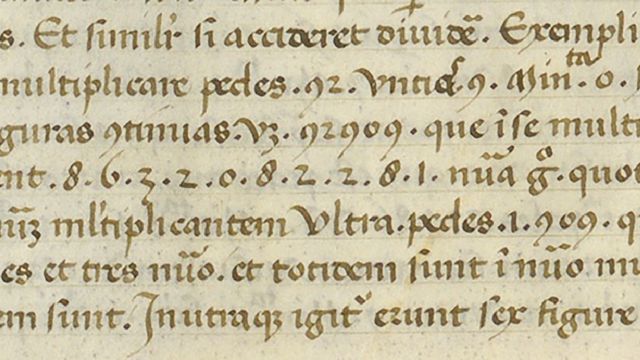 s. Et simil'r si accideret dividē. Exempli
multiplicare pedes .92. vntie .9. Minta .0.
guras ꝯtinuas. vꝫ. 92909. que ī se multi
ent. 8. 6. 3. 2. 0. 8. 2. 2. 8. 1. nūa gͦ quot
ml'tiplicantem vltra. pedes .1. 909. q
es et tres nūo. et totidem sunt ī nūo mu
em sunt. In utraqꝫ igit' erunt sex figure